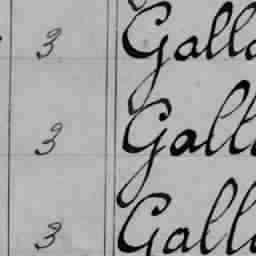 3 Galla
3 Gall
3 Gall